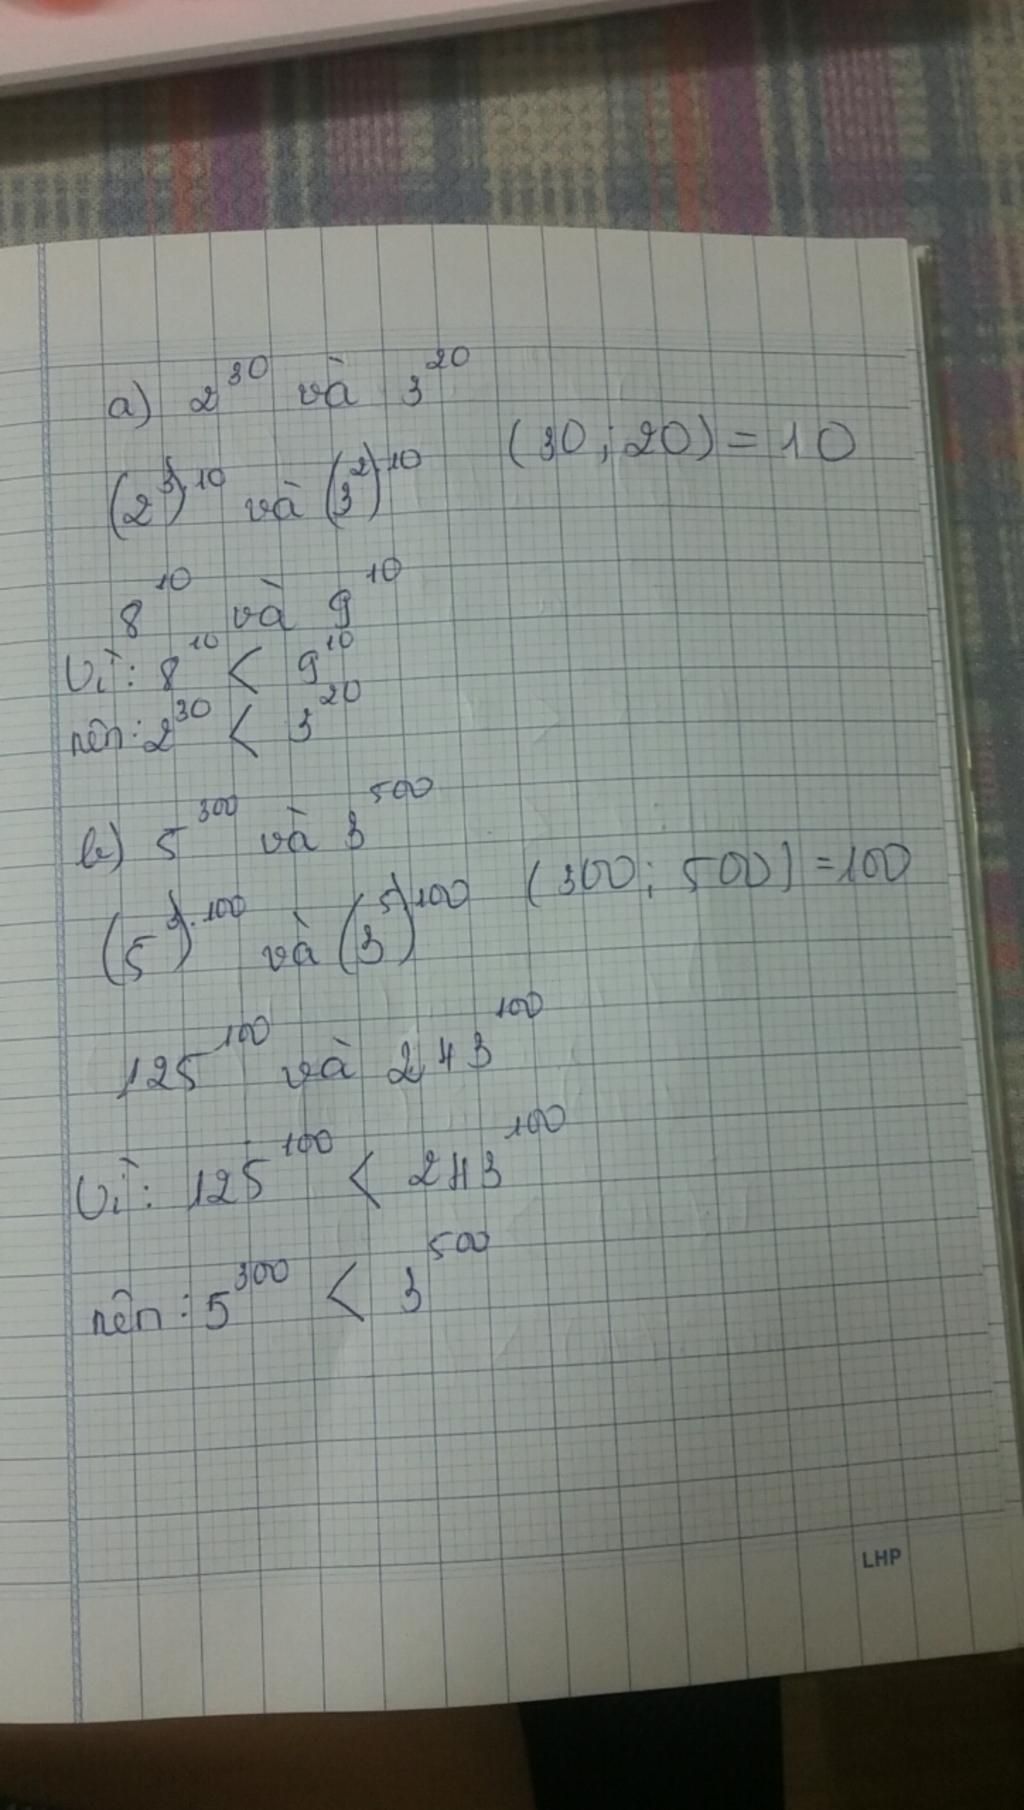 a) 2^30 và 3^20
(30 ; 20) = 10
(2^3)^10 và (3^2)^10
8^10 và 9^10
Vì : 8^10 < 9^10
nên : 2^30 < 3^20
b) 5^300 và 3^500
(300 ; 500) = 100
(5^3)^100 và (3^5)^100
125^100 và 243^100
Vì : 125^100 < 243^100
nên : 5^300 < 3^500
LHP